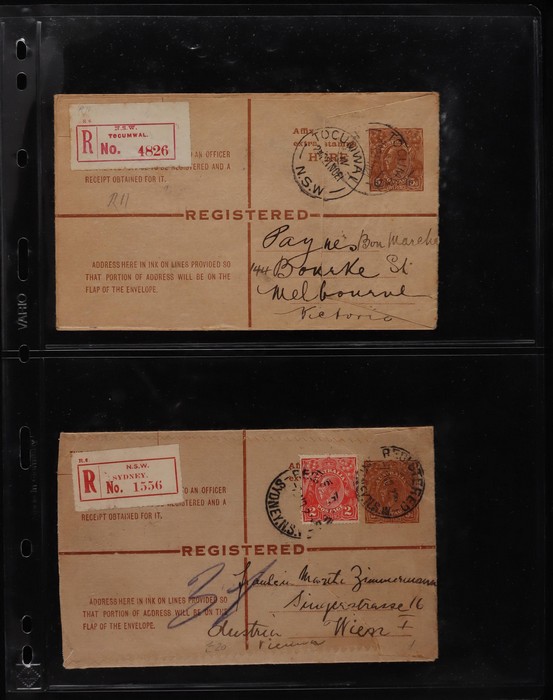 N.S.W.
TOCUMWAL.
R No. 4826
TO AN OFFICER
TO BE REGISTERED AND A
RECEIPT OBTAINED FOR IT.
R11
extra
HERE
TOCUMWAL
N.S.W
REGISTERED
ADDRESS HERE IN INK ON LINES PROVIDED SO
THAT PORTION OF ADDRESS WILL BE ON THE
FLAP OF THE ENVELOPE.
Payne's Bon Marche
144 Bourke St
Melbourne
Victoria
VARIO
R.6
N.S.W.
SYDNEY.
R No. 1556
TO AN OFFICER
REGISTERED AND A
RECEIPT OBTAINED FOR IT.
2 2
REGISTERED
SYDNEY
N.S.W
REGISTERED
ADDRESS HERE IN INK ON LINES PROVIDED SO
THAT PORTION OF ADDRESS WILL BE ON THE
FLAP OF THE ENVELOPE.
Fräulein Marta Zimmermann
Singerstrasse 16
Austria Wien I
Vienna